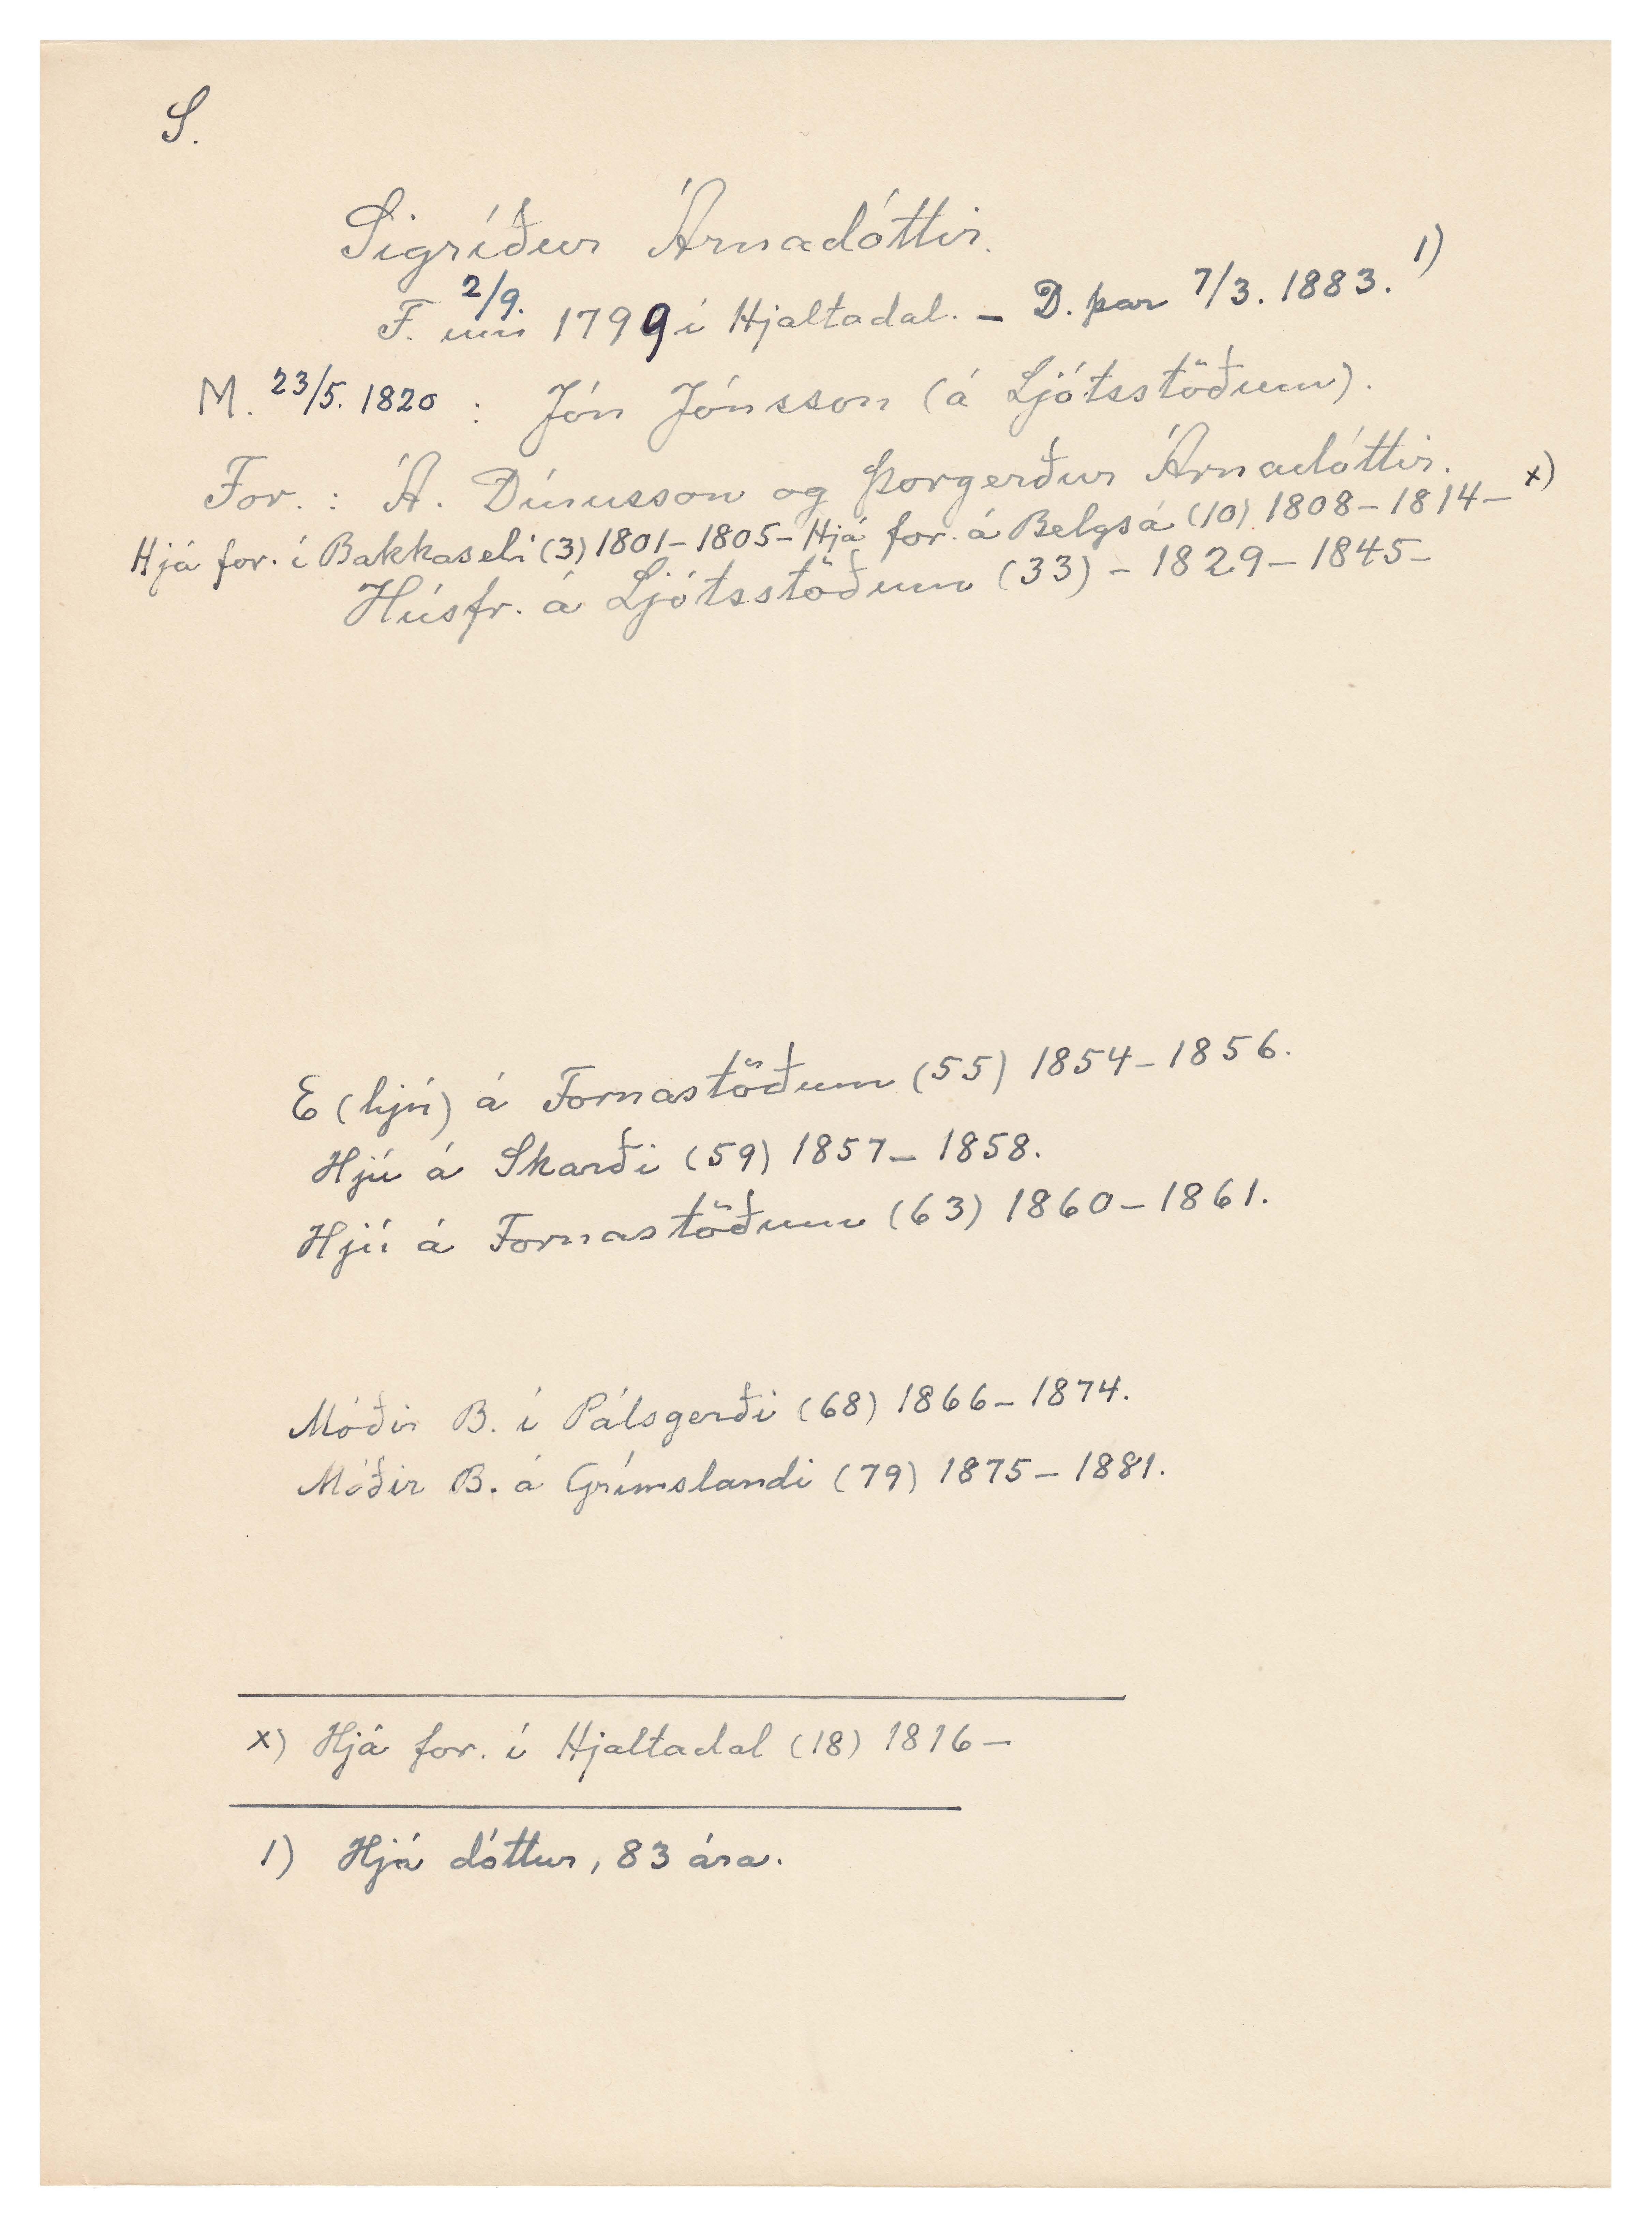 S.
Sigríður Árnadóttir.
F. um 2/9. 1799 í Hjaltadal. – D. þar 7/3. 1883. 1)
M. 23/5. 1820 : Jón Jónsson (á Ljótsstöðum).
For. : Á. Dínusson og Þorgerður Árnadóttir.
Hjá for. í Bakkaseli (3) 1801–1805– Hjá for. á Belgsá (10) 1808–1814– x)
Húsfr. á Ljótsstöðum (33) – 1829–1845–
E (hjú) á Fornastöðum (55) 1854–1856.
Hjú á Skarði (59) 1857–1858.
Hjú á Fornastöðum (63) 1860–1861.
Móðir B. í Pálsgerði (68) 1866–1874.
Móðir B. á Grímslandi (79) 1875–1881.
x) Hjá for. í Hjaltadal (18) 1816–
1) Hjá dóttur, 83 ára.